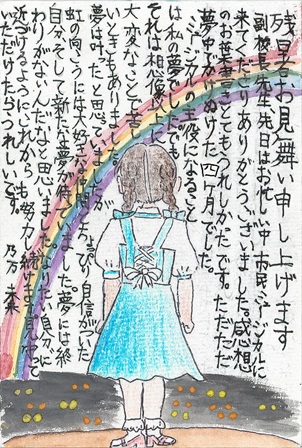 残暑お見舞い申し上げます
副校長先生、先日はお忙しい中市民ミュージカルに
来てくださりありがとうございました。感想
のお葉書きとてもうれしかったです。ただただ
夢中でかけぬけた四ヶ月でした。
ミュージカルの主役になること
は私の夢でした。でも
それは想像以上に
大変なことで苦し
いときもありましたが
夢は叶ったと思っていました。
虹の向こうには大好きな仲間とちょっぴり自信がついた
自分、そして新たな夢が待っていました。夢には終
わりがないんだなと思いました。なりたい自分に
近づけるようにこれからも努力し続けます。見守って
いただけたらうれしいです。